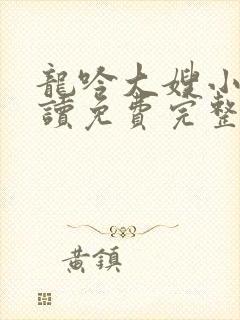 龍吟大嫂小
讀免費完整
黃鎮